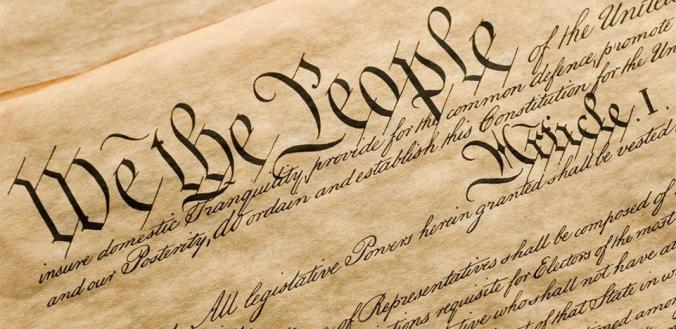 We the People of the United
insure domestic Tranquility, provide for the common defence, promote
and our Posterity, do ordain and establish this Constitution for the Un
Article. I.
All legislative Powers herein granted shall be vested
of Representatives shall be composed of
tions requisite for Electors of the most
tive who shall not have at
nt of that State in w